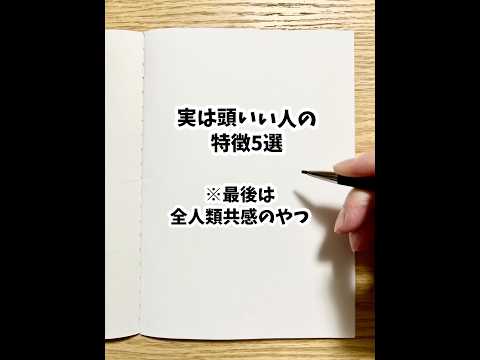 実は頭いい人の
特徴5選
※最後は
全人類共感のやつ